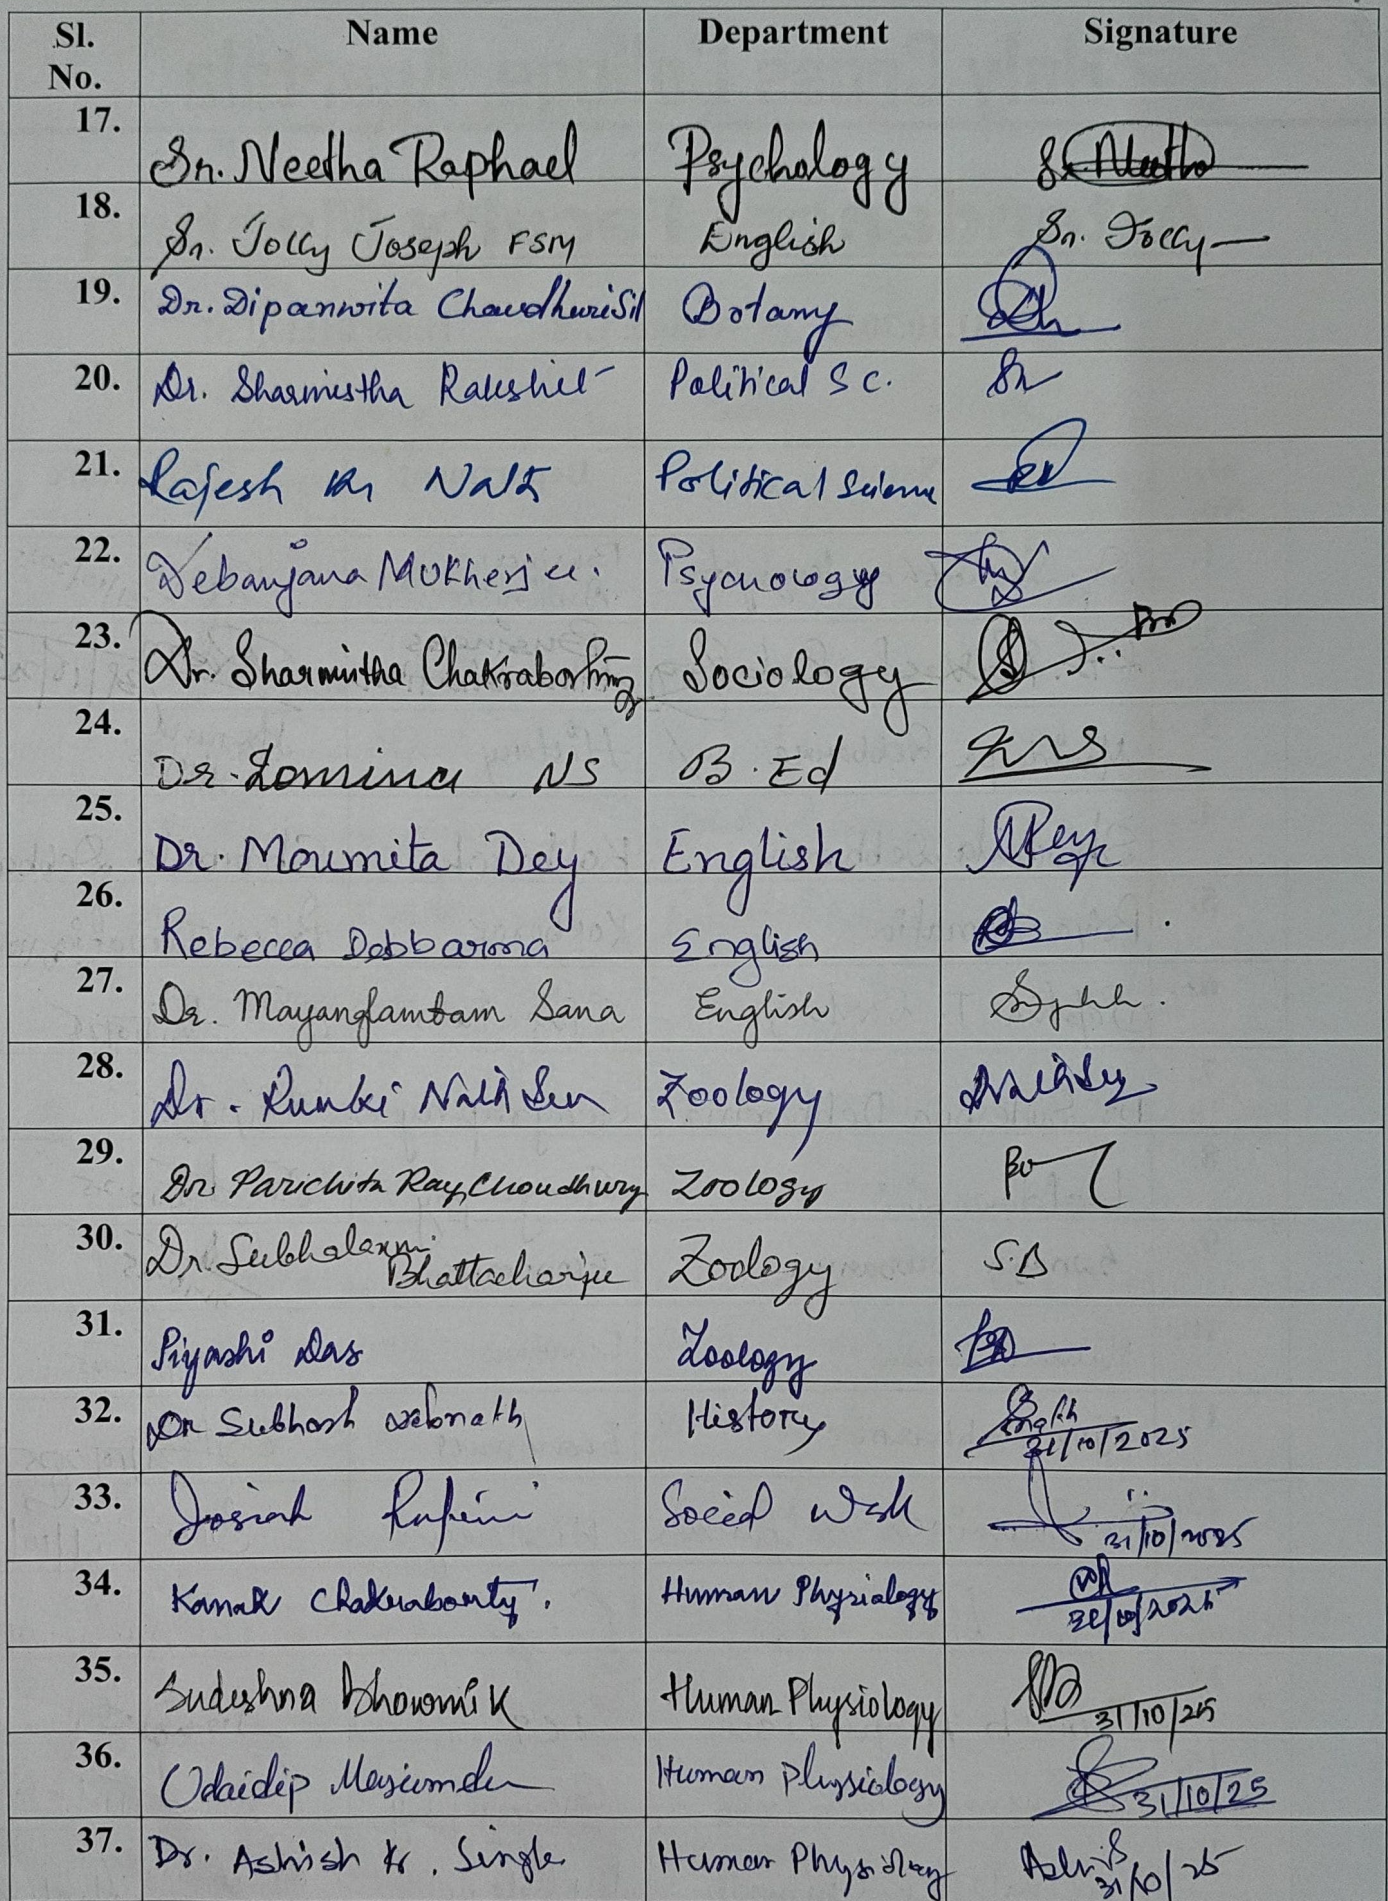 Sl. No. Name Department Signature
17. Sr. Neetha Raphael Psychology Sr. Neetha
18. Sr. Jolly Joseph FSM English Sr. Jolly
19. Dr. Dipanwita Chaudhuri Sil Botany
20. Dr. Sharmistha Rakshit Political Sc.
21. Rajesh Kr Nath Political Science
22. Debanjana Mukherjee. Psychology
23. Dr. Sharmistha Chakraborty Sociology
24. Dr. Lomina NS B.Ed
25. Dr. Moumita Dey English MDey
26. Rebecca Debbarma English
27. Dr. Mayanglambam Sana English
28. Dr. Runki Nath Sen Zoology
29. Dr Parichita Ray Choudhury Zoology
30. Dr. Subhalaxmi Zoology S.B
Bhattacharjee
31. Piyashi Das Zoology
32. Dr Subhash Debnath History
31/10/2025
33. Josiah Social Work
31/10/2025
34. Kanak Chakraborty. Human Physiology
31/10/2025
35. Sudeshna Bhowmik Human Physiology 31/10/25
36. Udaidip Majumder Human physiology 31/10/25
37. Dr. Ashish Kr. Singh Human Physiology 31/10/25